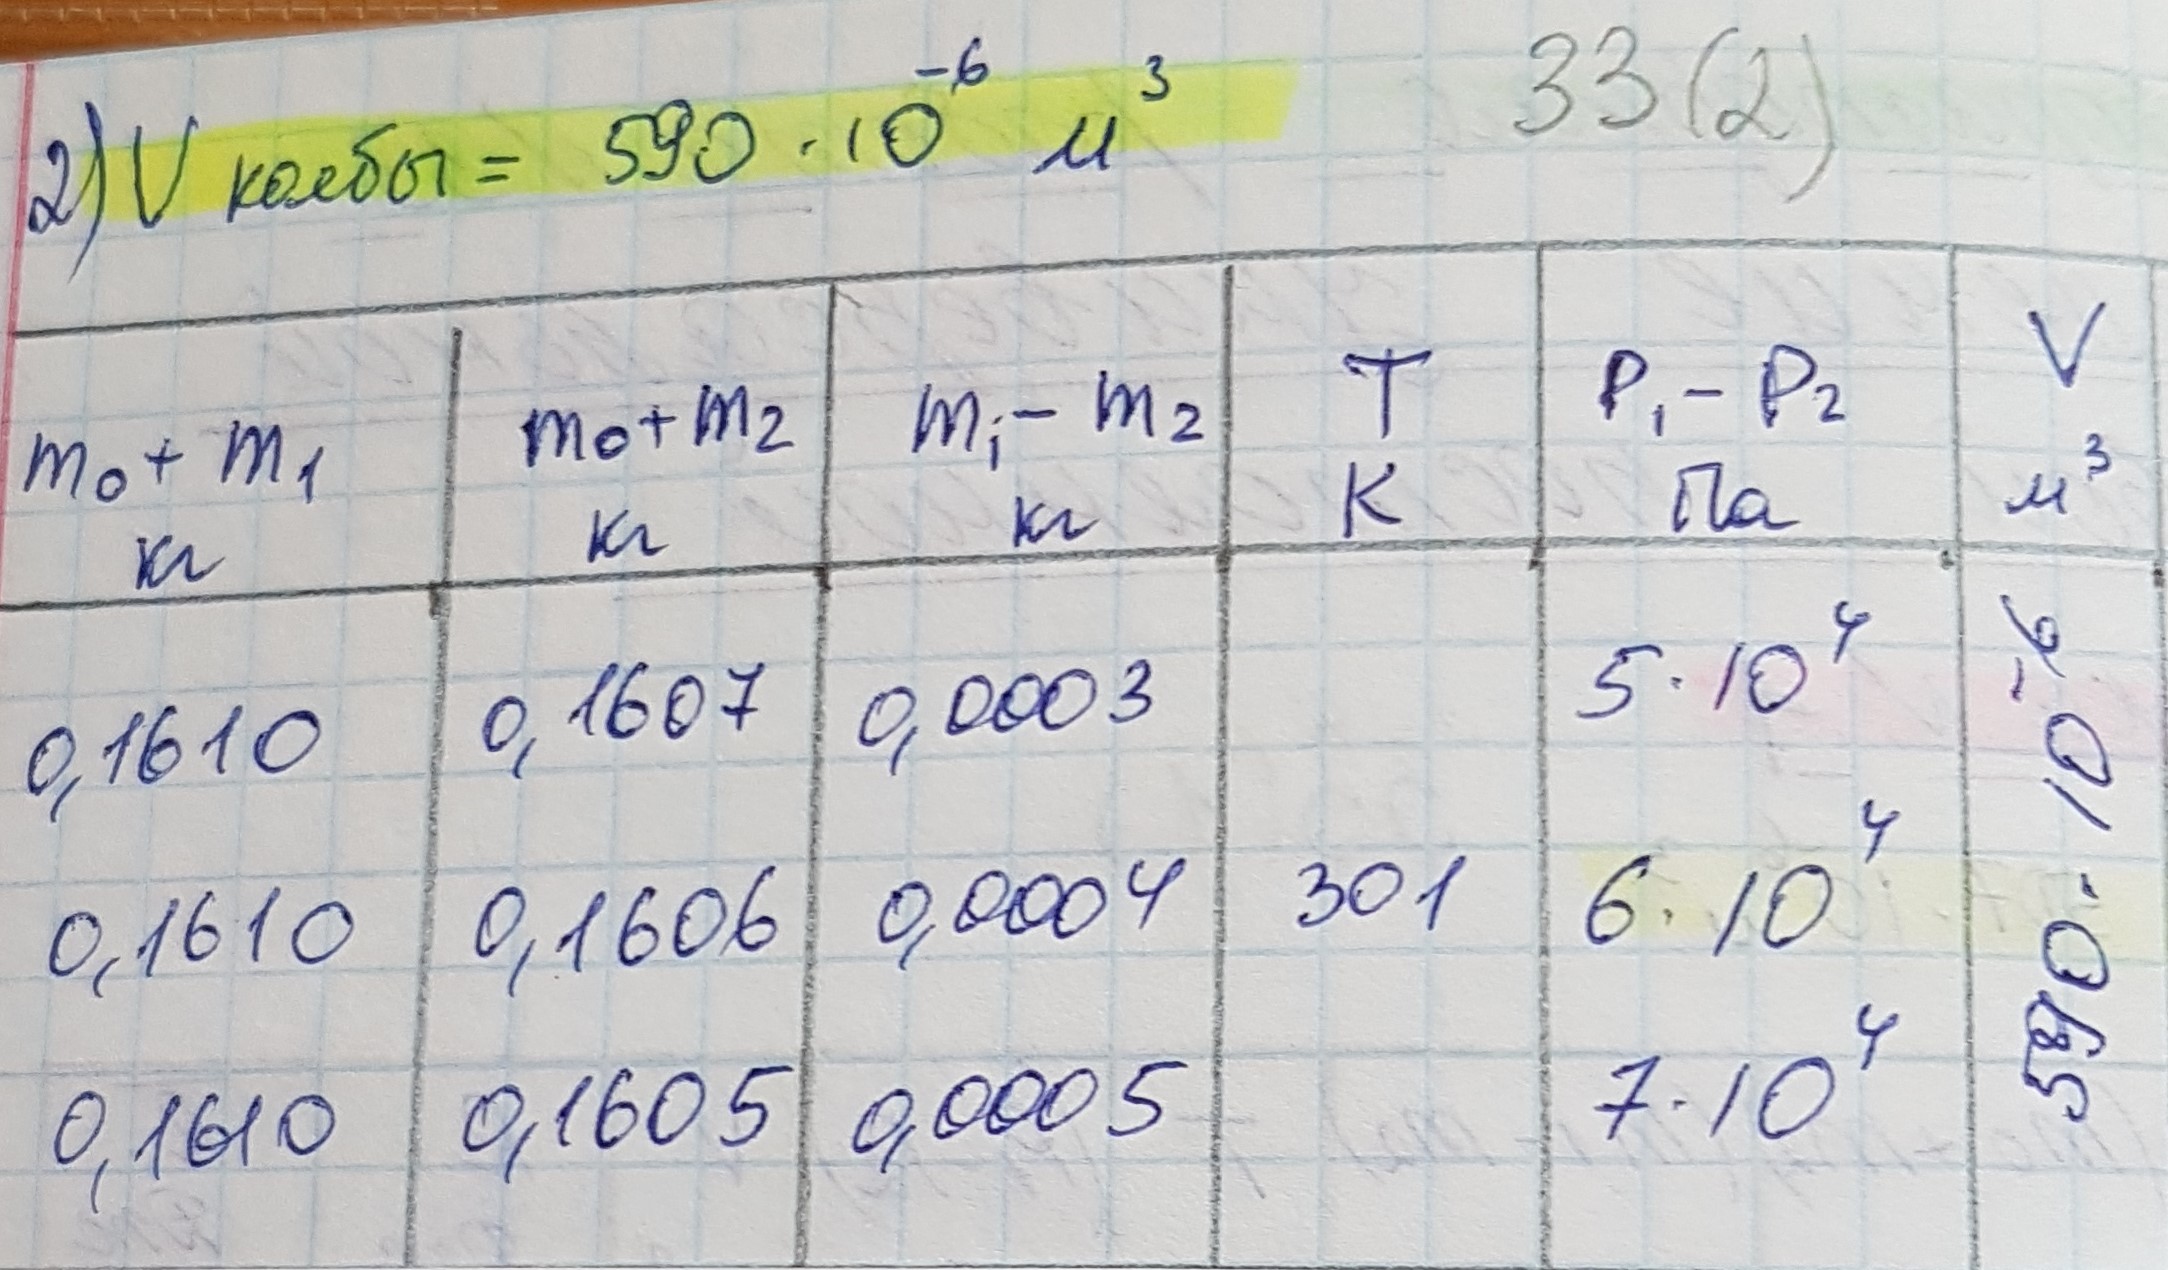 33(2)
2) V колбы = 590 · 10⁻⁶ м³
m₀ + m₁ кг | m₀ + m₂ кг | m₁ - m₂ кг | T K | P₁ - P₂ Па | V м³
0,1610 | 0,1607 | 0,0003 | | 5 · 10⁴ | 590 · 10⁻⁶
0,1610 | 0,1606 | 0,0004 | 301 | 6 · 10⁴
0,1610 | 0,1605 | 0,0005 | | 7 · 10⁴